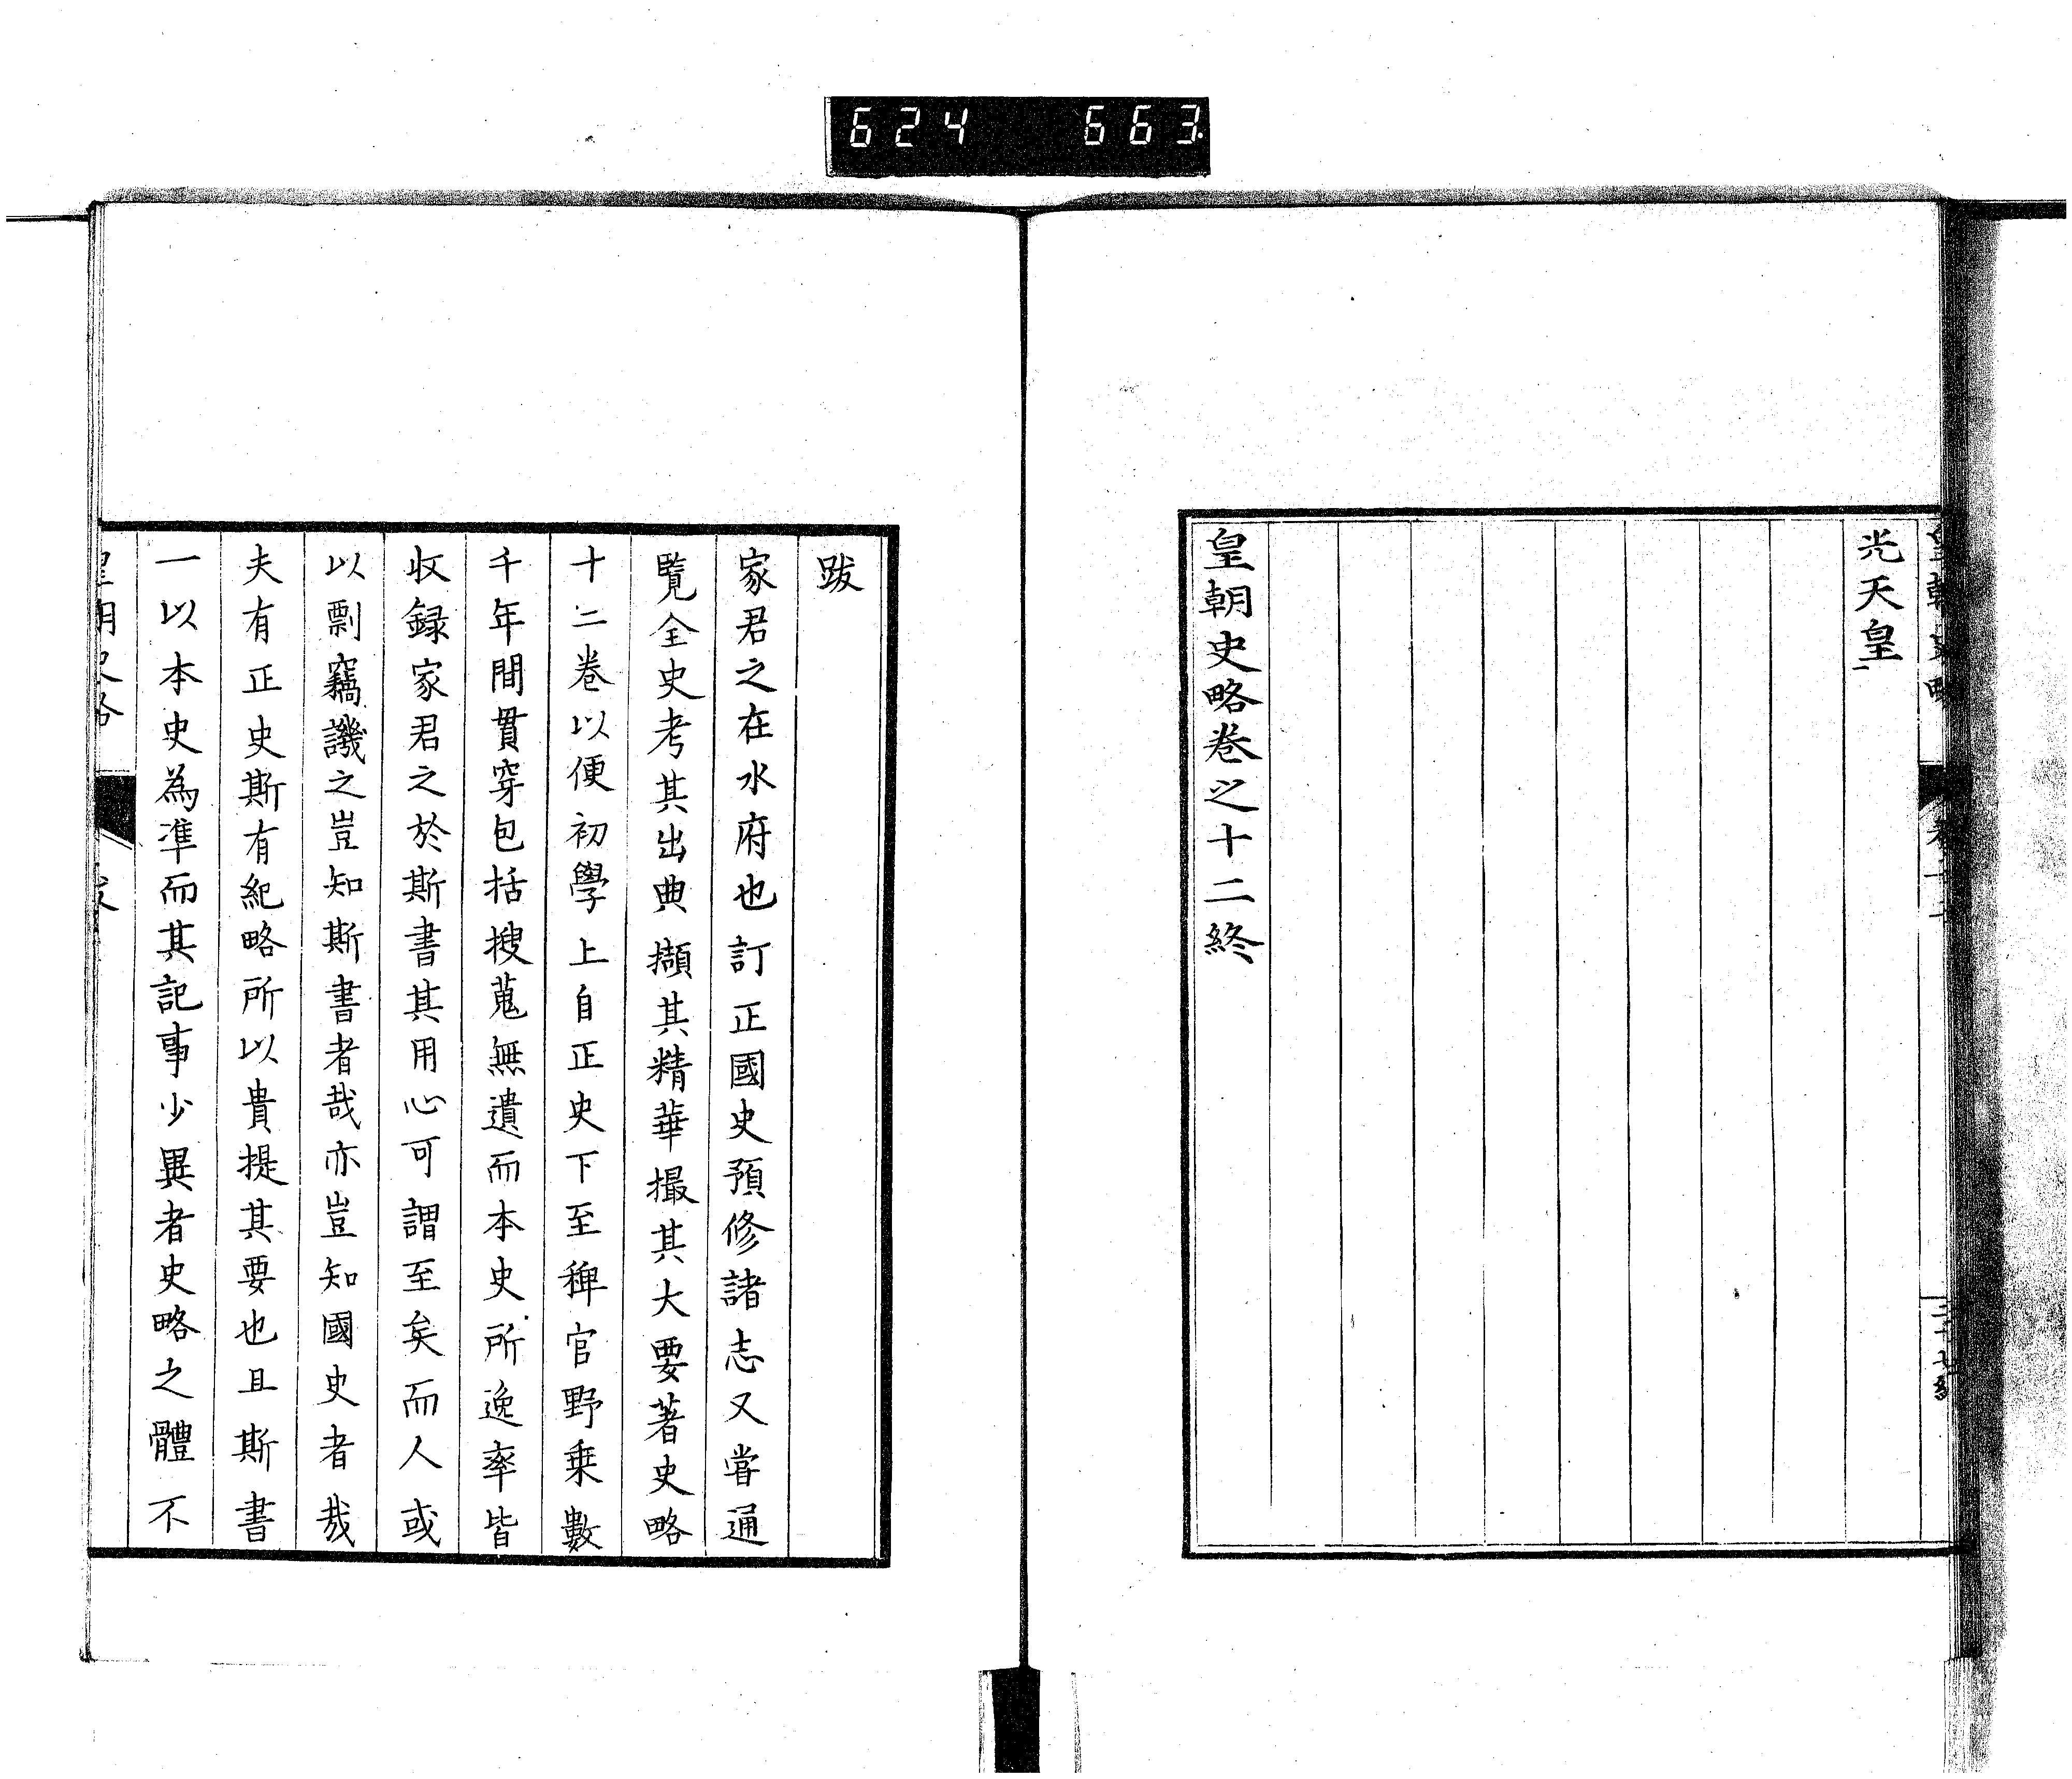 624 663
光天皇
皇朝史略卷之十二終
跋
家君之在水府也訂正國史預修諸志又嘗通
覽全史考其出典擷其精華撮其大要著史略
十二卷以便初學上自正史下至稗官野乗數
千年間貫穿包括搜蒐無遺而本史所逸率皆
收録家君之於斯書其用心可謂至矣而人或
以剽竊譏之豈知斯書者哉亦豈知國史者哉
夫有正史斯有紀略所以貴提其要也且斯書
一以本史為準而其記事少異者史略之體不